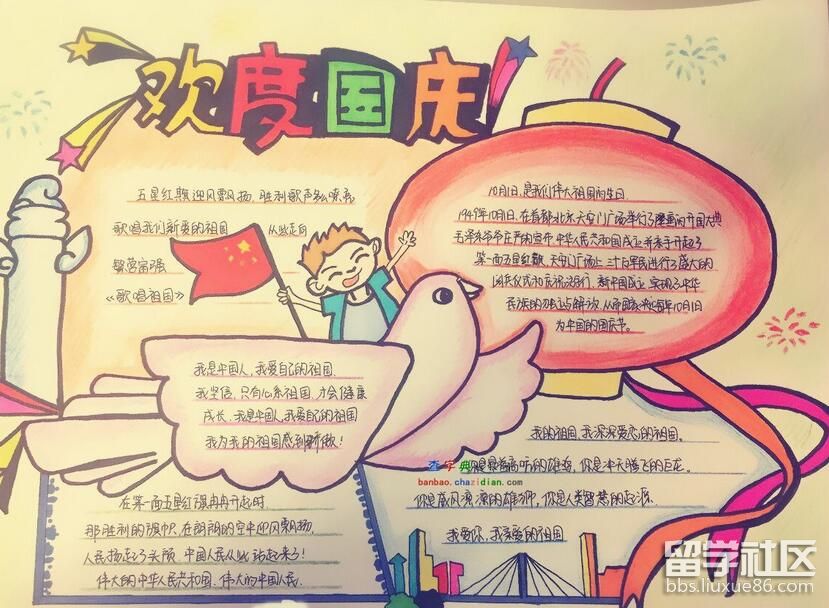 欢度国庆
五星红旗迎风飘扬,胜利歌声多么嘹亮
歌唱我们亲爱的祖国 从此走向
繁荣富强
《歌唱祖国》
10月1日,是我们伟大祖国的生日.
1949年10月1日,在首都北京天安门广场举行了隆重的开国大典
毛泽东爷爷庄严的宣布 中华人民共和国成立,并亲手升起了
第一面五星红旗,天安门广场上三十万军民进行了盛大的
阅兵仪式和庆祝游行 新中国成立,实现了中华
民族的独立与解放 每年10月1日
为中国的国庆节。
我是中国人,我爱自己的祖国.
我坚信,只有心系祖国,才会健康
成长,我是中国人,我爱自己的祖国
我为我的祖国感到骄傲!
我的祖国,我深深爱恋的祖国.
你是 的雄鸡,你是冲天腾飞的巨龙.
你是威风凛凛的雄狮,你是人类智慧的起源.
我爱你,我亲爱的祖国
查字典
banbao.chazidian.com
在第一面五星红旗冉冉升起时.
那胜利的旗帜,在朗朗的空中迎风飘扬.
人民扬起了头颅,中国人民从此站起来了!
伟大的中华人民共和国,伟大的中国人民.
留学社区
bbs.liuxue86.com